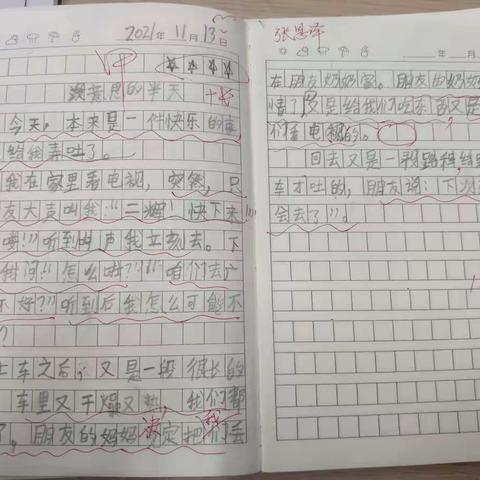 2021年11月13日
没意思的半天
今天，本来是一件快乐的事
给我弄吐了。
我在家里看电视，突然，只
友大声叫我："二 快下来
！"听到叫声我立刻去。下
时问："怎么啦？""咱们去
不好？"听到后我怎么可能不
？
上车之后，又是一段很长的
车里又干燥又热，我们都
了。朋友的妈妈决定把我们丢
张恩泽
年 月
在朋友奶奶家。朋友的奶奶
情了又是给我们吃东西又是
们看电视的。
回去又是一段路程，给
车才吐的，朋友说：下次
会去了"。